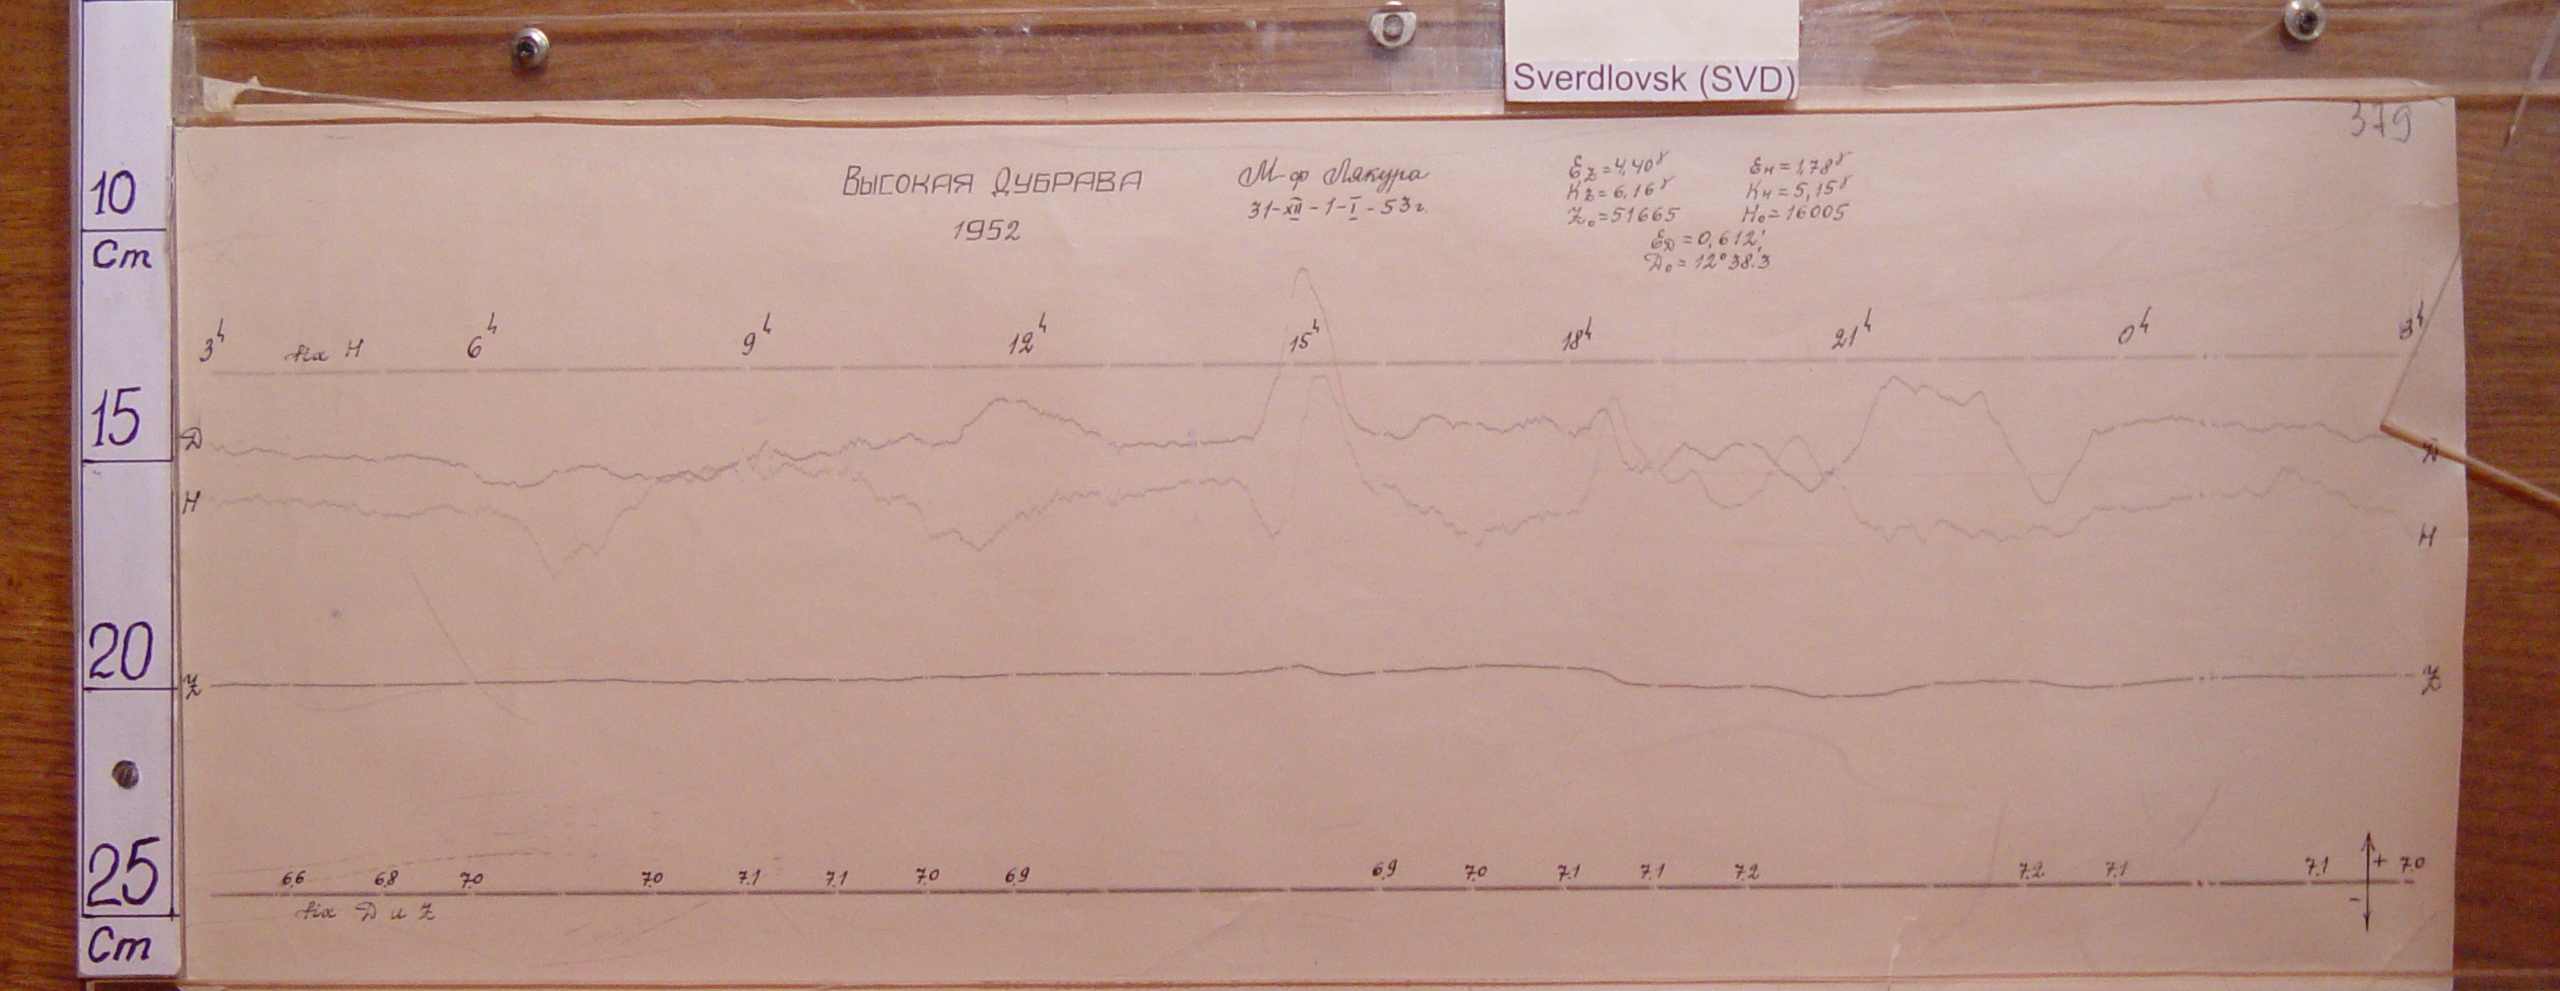 Sverdlovsk (SVD)
379
10
Cm
15
20
25
Cm
ВЫСОКАЯ ДУБРАВА
1952
М-ф Лякура
31-XII-1-I-53г.
Ez=4,40γ
Kz=6,16γ
Z₀=51665
Eн=1,78γ
Kн=5,15γ
H₀=16005
EД=0,612'
Д₀=12°38.3
3ч 6ч 9ч 12ч 15ч 18ч 21ч 0ч 3ч
fix H
Д Д
H H
Z Z
6.6 6.8 7.0 7.0 7.1 7.1 7.0 6.9 6.9 7.0 7.1 7.1 7.2 7.2 7.1 7.1 + 7.0
-
fix Д и Z